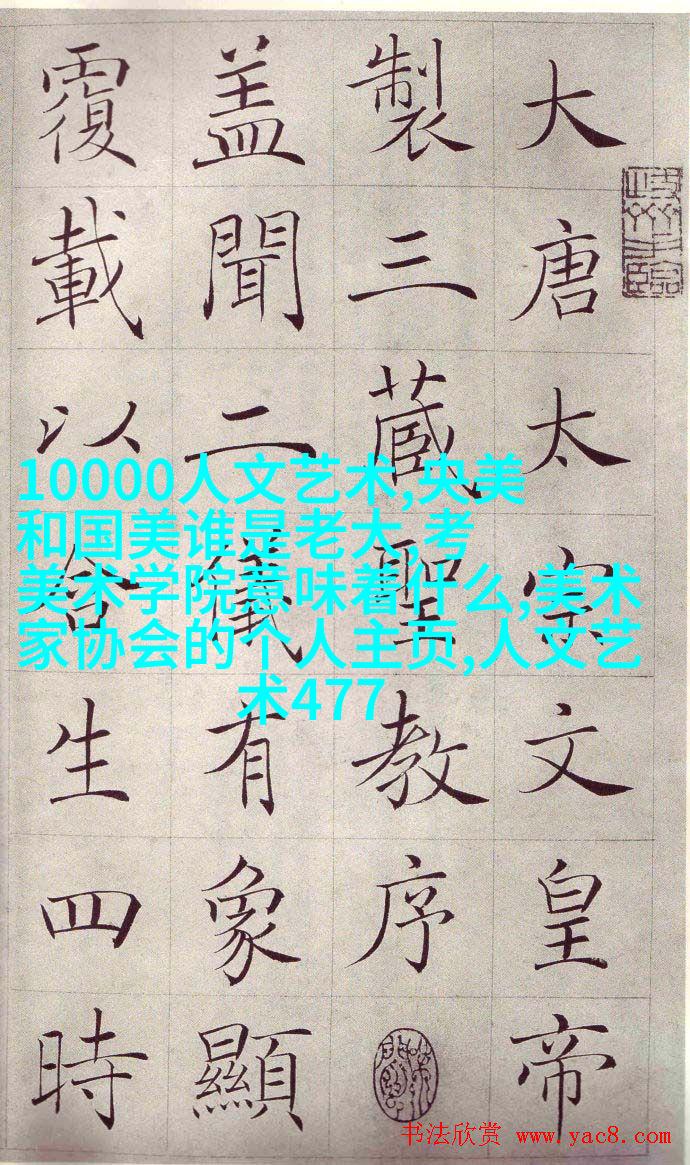 大唐太宗文皇帝
製三藏聖教序
盖聞二儀有象顯
覆載以含生四時
10000人文艺术,央美
和国美谁是老大,考
美术学院意味着什么,美术
家协会的个人主页,人文艺
术477
书法欣赏 www.yac8.com